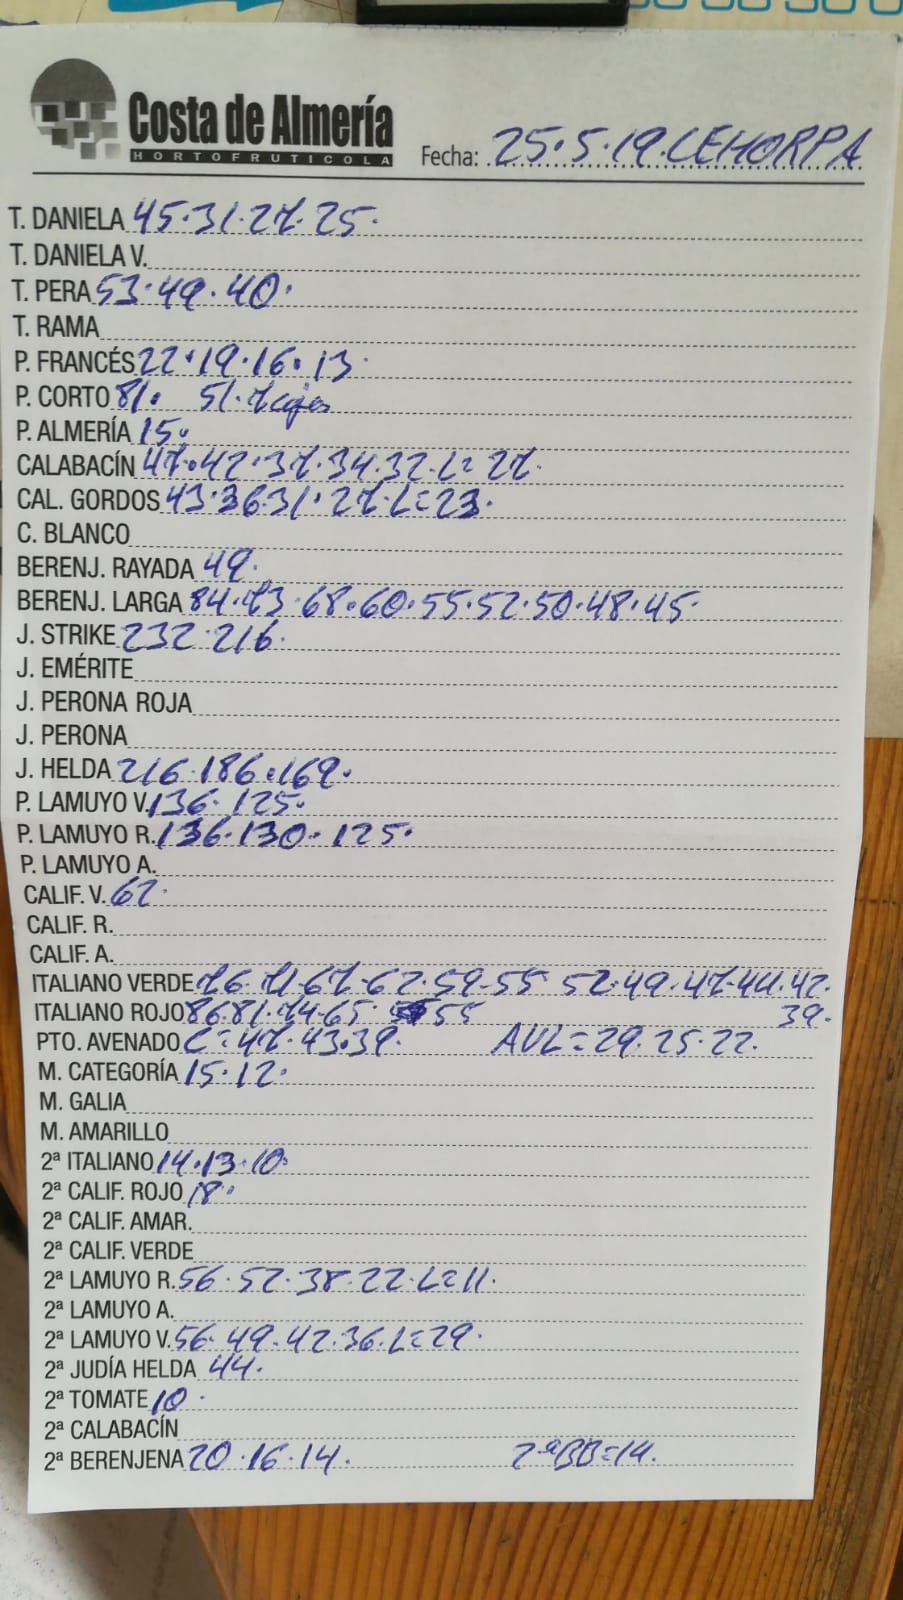 Costa de Almería
HORTOFRUTICOLA
Fecha: 25.5.19.CEHORPA
T. DANIELA 45.31.27.25.
T. DANIELA V.
T. PERA 53.49.40.
T. RAMA
P. FRANCÉS 22.19.16.13.
P. CORTO 81. 51.7 cajas
P. ALMERÍA 15.
CALABACÍN 47.42.37.34.32.L=27.
CAL. GORDOS 43.36.31.27.L=23.
C. BLANCO
BERENJ. RAYADA 49.
BERENJ. LARGA 84.73.68.60.55.52.50.48.45.
J. STRIKE 232.216.
J. EMÉRITE
J. PERONA ROJA
J. PERONA
J. HELDA 216.186.169.
P. LAMUYO V. 136.125.
P. LAMUYO R. 136.130.125.
P. LAMUYO A.
CALIF. V. 62.
CALIF. R.
CALIF. A.
ITALIANO VERDE 76.71.67.62.59.55 52.49.47.44.42.
39.
ITALIANO ROJO 86.81.74.65. 55
PTO. AVENADO C=47.43.39. AVL=29.25.22.
M. CATEGORÍA 15.12.
M. GALIA
M. AMARILLO
2ª ITALIANO 14.13.10.
2ª CALIF. ROJO 18.
2ª CALIF. AMAR.
2ª CALIF. VERDE
2ª LAMUYO R. 56.52.38.22.L=11.
2ª LAMUYO A.
2ª LAMUYO V. 56.49.42.36.L=29.
2ª JUDÍA HELDA 44.
2ª TOMATE 10.
2ª CALABACÍN
2ª BERENJENA 20.16.14. 2ªBB=14.